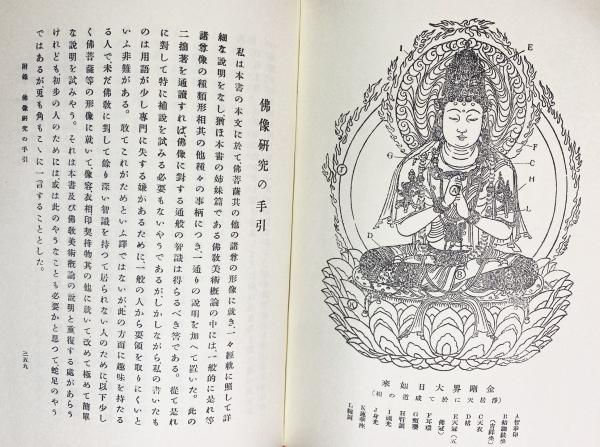 I
E
F
C
H
L
G
A
D
J
K
金剛界大日如來
(淨居天に於て成道の相)
A智拳印
B結跏趺坐
(吉祥坐)
C天衣
D裙
E天冠(五
佛冠)
F耳環
G瓔珞
H臂釧
I頭光
J身光
K蓮華座
L腕釧
佛像硏究の手引
私は本書の本文に於て佛菩薩其の他の諸尊の形像に就き、一々經軌に照して詳
細な說明をなし猶ほ本書の姉妹篇である佛敎美術槪論の中には、一般的に是れ等
諸尊像の種類形相其の他種々の事柄につき一通りの說明を加へて置いた。此の
二拙著を通讀すれば、佛像に對する通般の智識は得らるべき筈である。從て是れ
に對して特に補說を試みる必要もないやうであるが、しかしながら私の書いたも
のは用語が少し專門に失する嫌があるために、一般の人から要領を取りにくいと
いふ非難がある。敢てこれがためといふ譯ではないが此の方面に趣味を持たる
る人で未だ佛敎に對して餘り深い智識を持つて居られない人のために以下少し
く佛菩薩等の形像に就いて、像容衣相印契持物其の他に就いて改めて極めて簡單
な說明を試みやう。それは本書及び佛敎美術槪論の說明と重複する處があらう
けれども初步の人のためには、或は此のやうなことも必要かと思つて蛇足のやう
ではあるが兎も角もこゝに一言することとした。
附錄 佛像硏究の手引
三五九